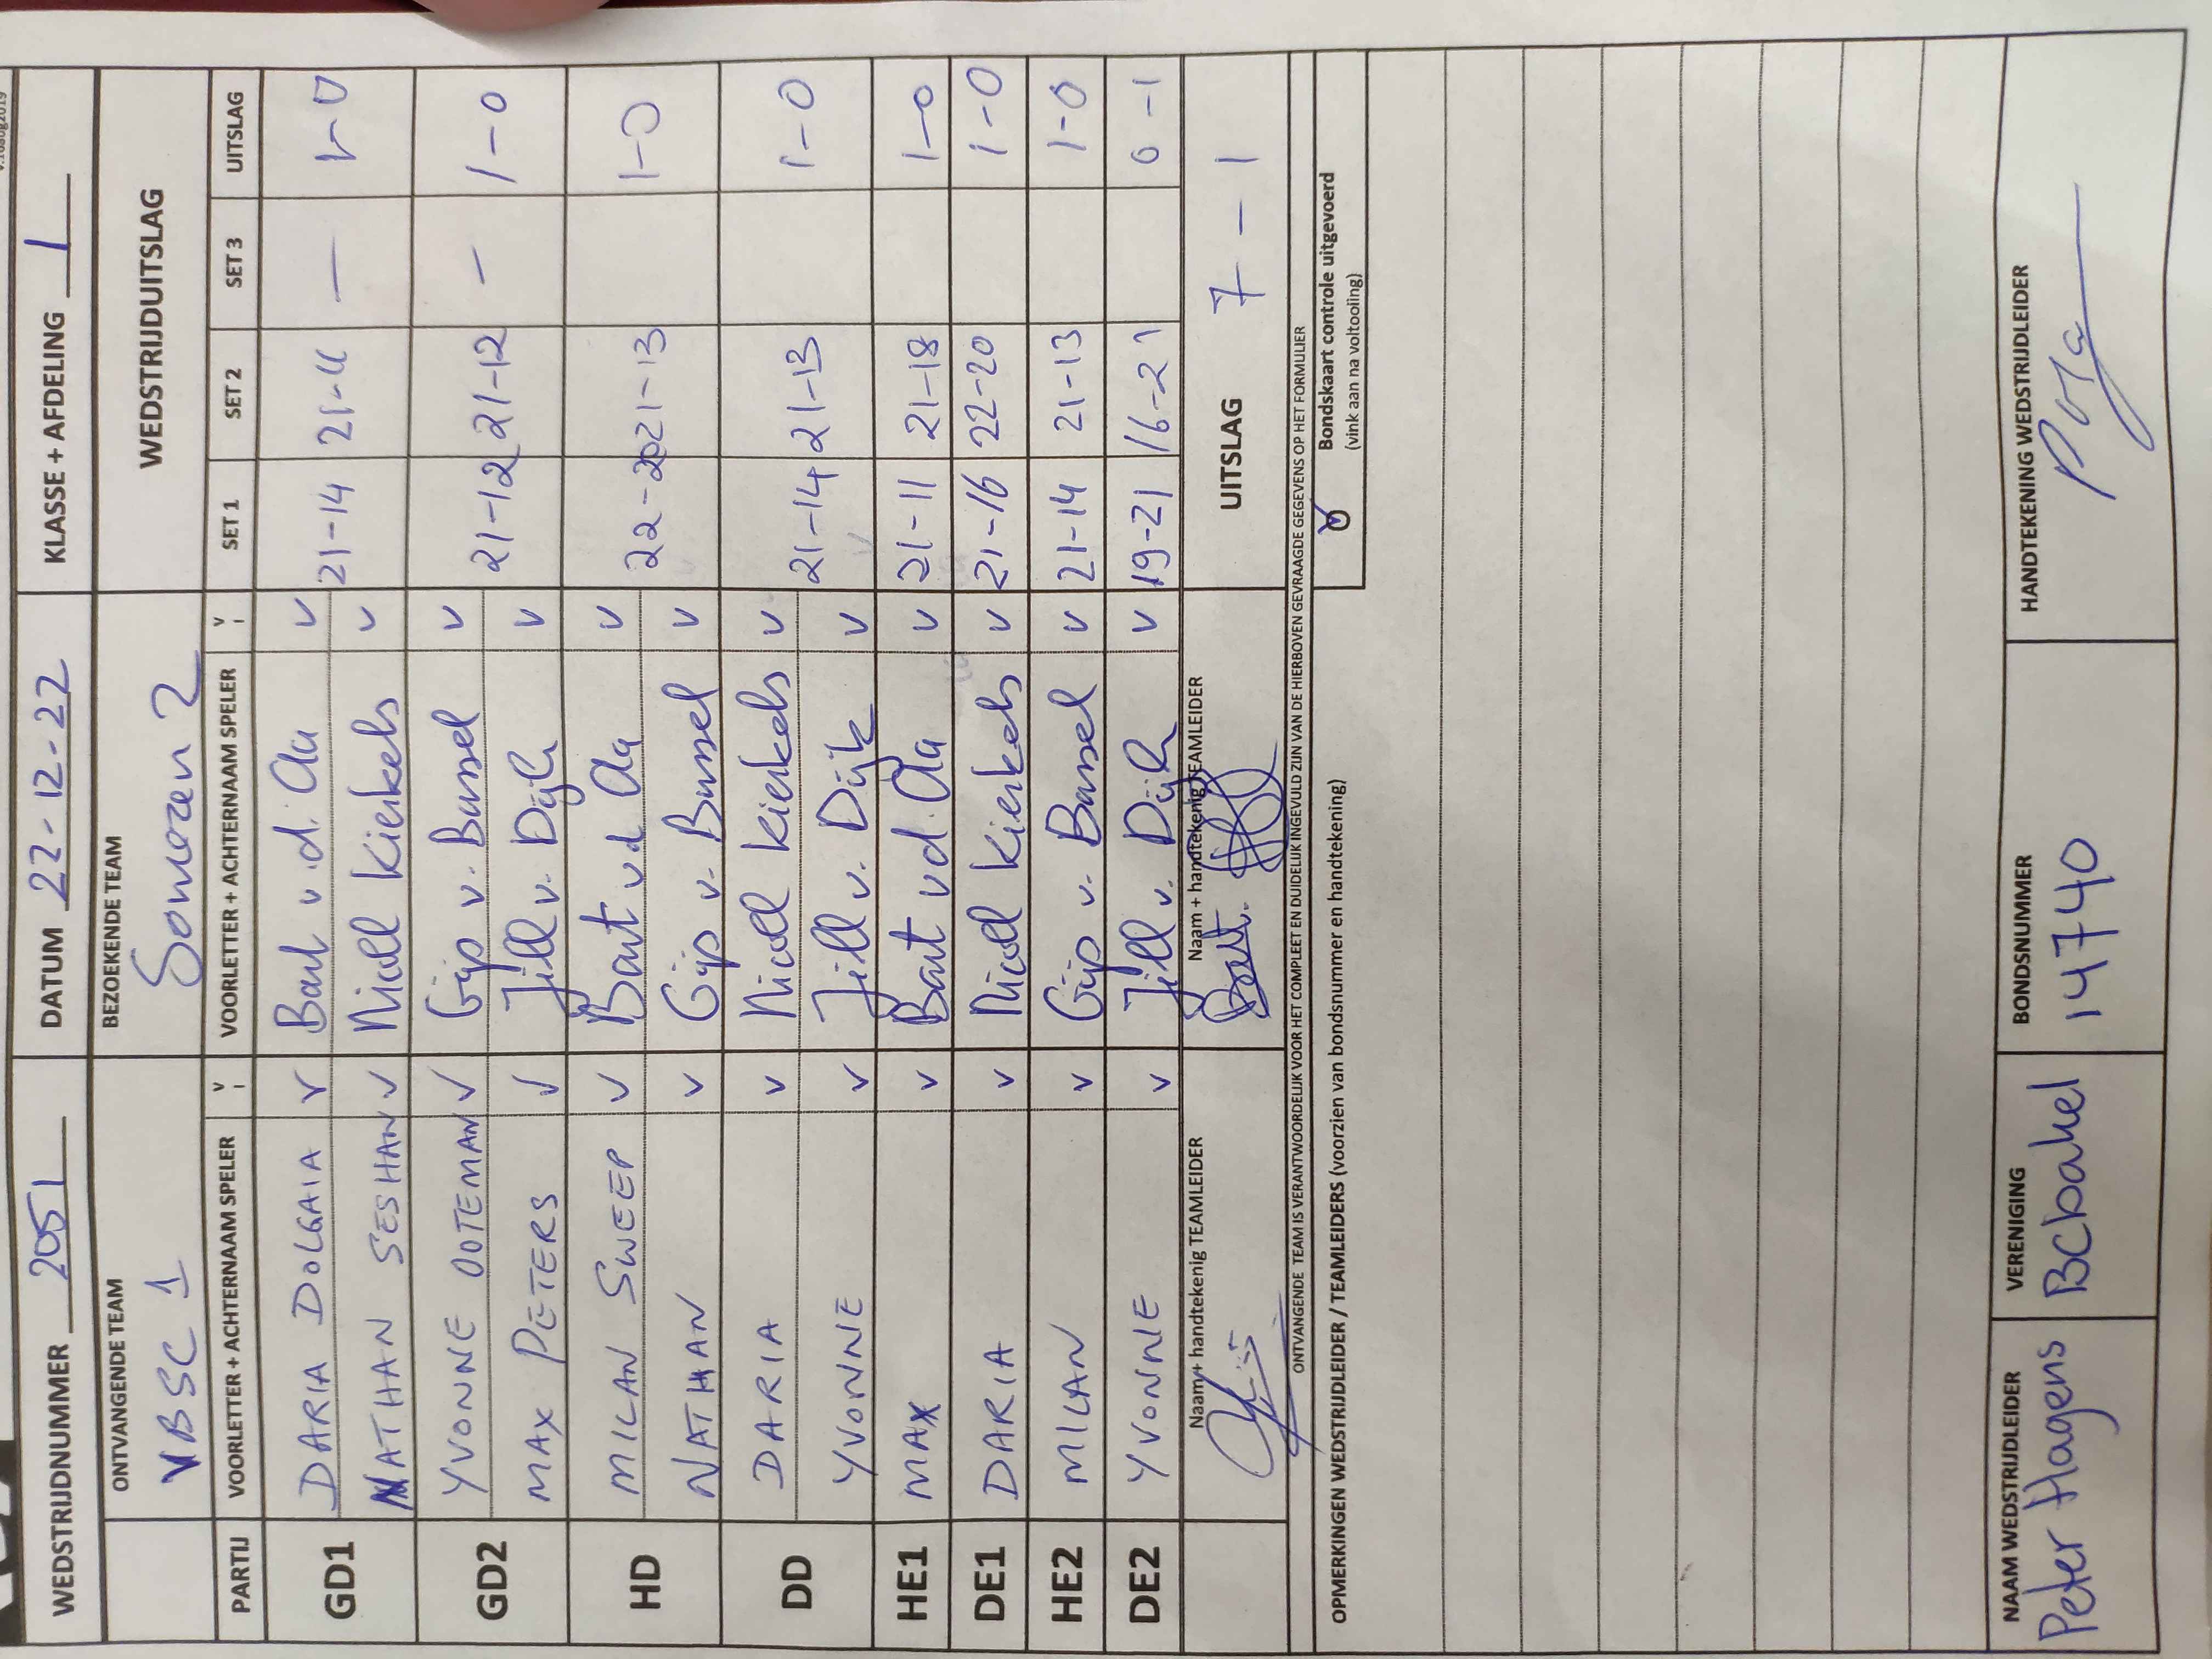 v.16aug2019
WEDSTRIJDNUMMER 2051 DATUM 22-12-22 KLASSE + AFDELING 1
ONTVANGENDE TEAM BEZOEKENDE TEAM WEDSTRIJDUITSLAG
VBSC 1 Someren 2
PARTIJ VOORLETTER + ACHTERNAAM SPELER V VOORLETTER + ACHTERNAAM SPELER V SET 1 SET 2 SET 3 UITSLAG
GD1 DARIA DOLGAIA v Bart v.d. Aa v 21-14 21-11 — 1-0
NATHAN SESHAN v Nicoll Kierkels v
GD2 YVONNE OOTEMAN v Gijs v. Bussel v 21-12 21-12 – 1-0
MAX PETERS v Jill v. Dijk v
HD MILAN SWEEP v Bart vd Aa v 22-20 21-13 1-0
NATHAN v Gijs v. Bussel v
DD DARIA v Nicoll Kierkels v 21-14 21-13 1-0
YVONNE v Jill v. Dijk v
HE1 MAX v Bart vd. Aa v 21-11 21-18 1-0
DE1 DARIA v Nicoll Kierkels v 21-16 22-20 1-0
HE2 MILAN v Gijs v. Bussel v 21-14 21-13 1-0
DE2 YVONNE v Jill v. Dijk v 19-21 16-21 0-1
Naam + handtekenig TEAMLEIDER Naam + handtekenig TEAMLEIDER UITSLAG 7-1
Bart
ONTVANGENDE TEAM IS VERANTWOORDELIJK VOOR HET COMPLEET EN DUIDELIJK INGEVULD ZIJN VAN DE HIERBOVEN GEVRAAGDE GEGEVENS OP HET FORMULIER
OPMERKINGEN WEDSTRIJDLEIDER / TEAMLEIDERS (voorzien van bondsnummer en handtekening) O Bondskaart controle uitgevoerd
(vink aan na voltooiing)
NAAM WEDSTRIJDLEIDER VERENIGING BONDSNUMMER HANDTEKENING WEDSTRIJDLEIDER
Peter Hagens BCbakel 14740